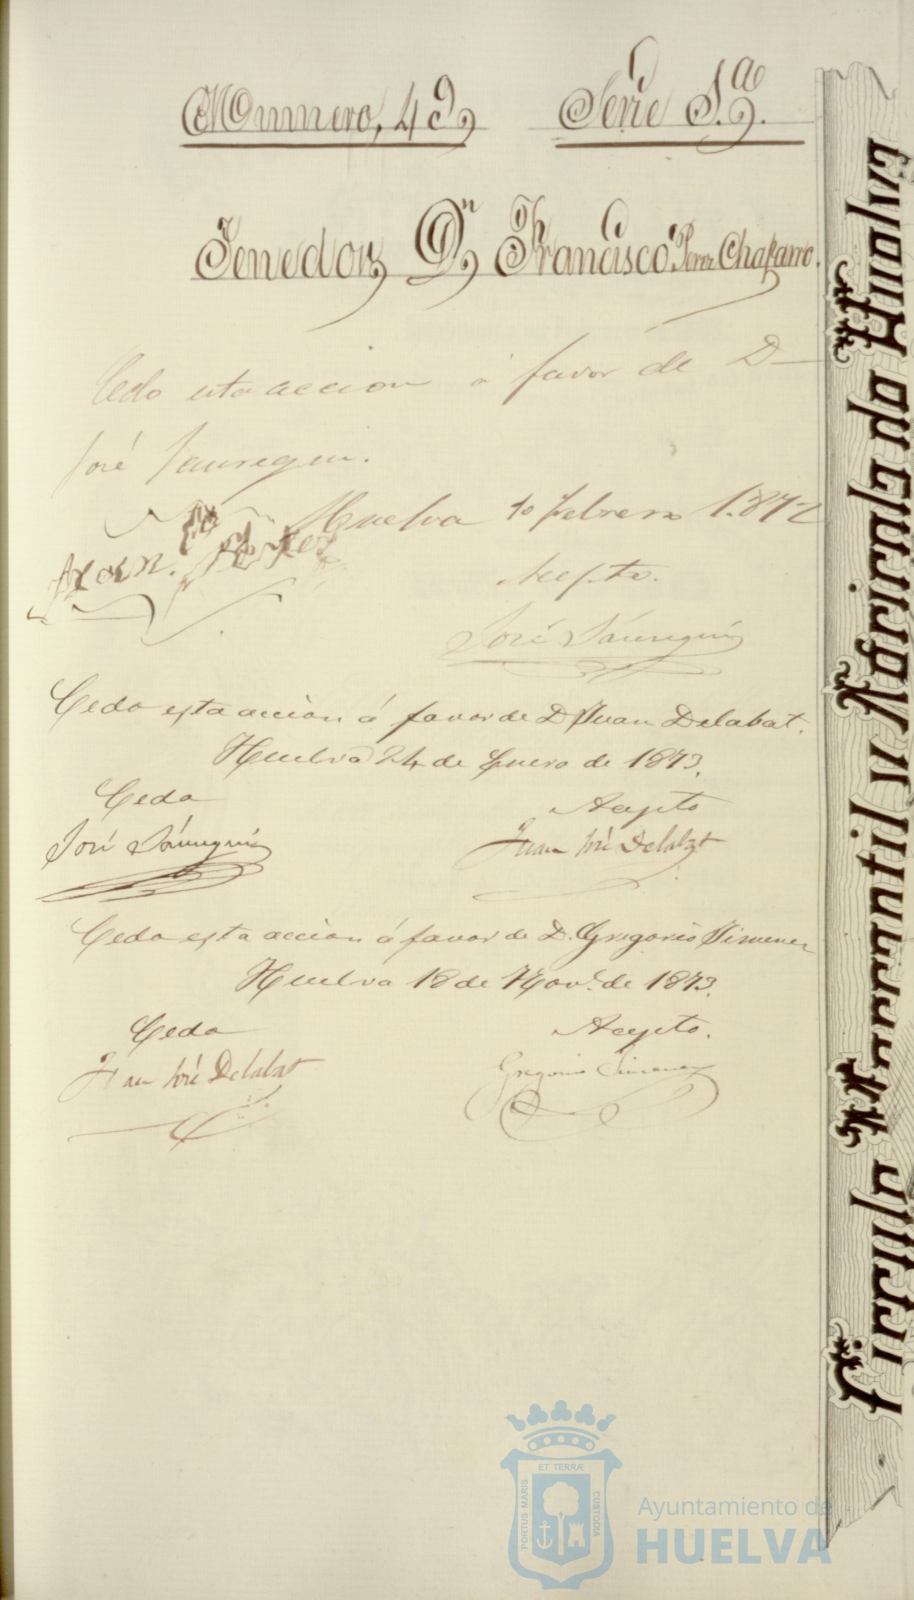 Numero, 49, Serie S.ª
Tenedor, Dn Francisco Perez Chaparro.
Cedo esta accion á favor de D
José Jauregui.
Huelva 10 febrero 1.872
Fran. Perez
Acepto.
José Jáuregui
Cedo esta acción á favor de D Juan Delabat.
Huelva 24 de Enero de 1873.
Cedo Acepto
José Jáuregui Juan José Delabat
Cedo esta acción á favor de D. Gregorio Jimenez
Huelva 18 de Nov. de 1873.
Cedo Acepto.
Juan José Delabat Gregorio Jimenez
PORTUS MARIS ET TERRÆ CUSTODIA
Ayuntamiento de
HUELVA